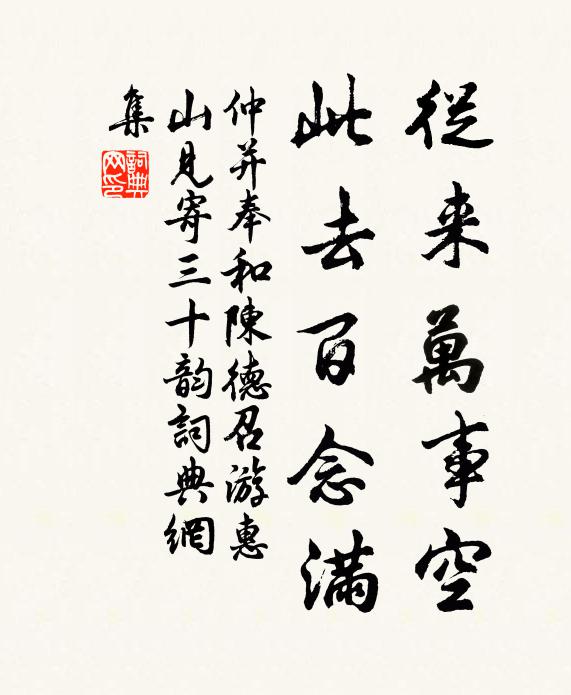 從来萬事空
此去百念滿
仲并奉和陳德召游惠
山見寄三十韵詞典網
集
詞典
网印